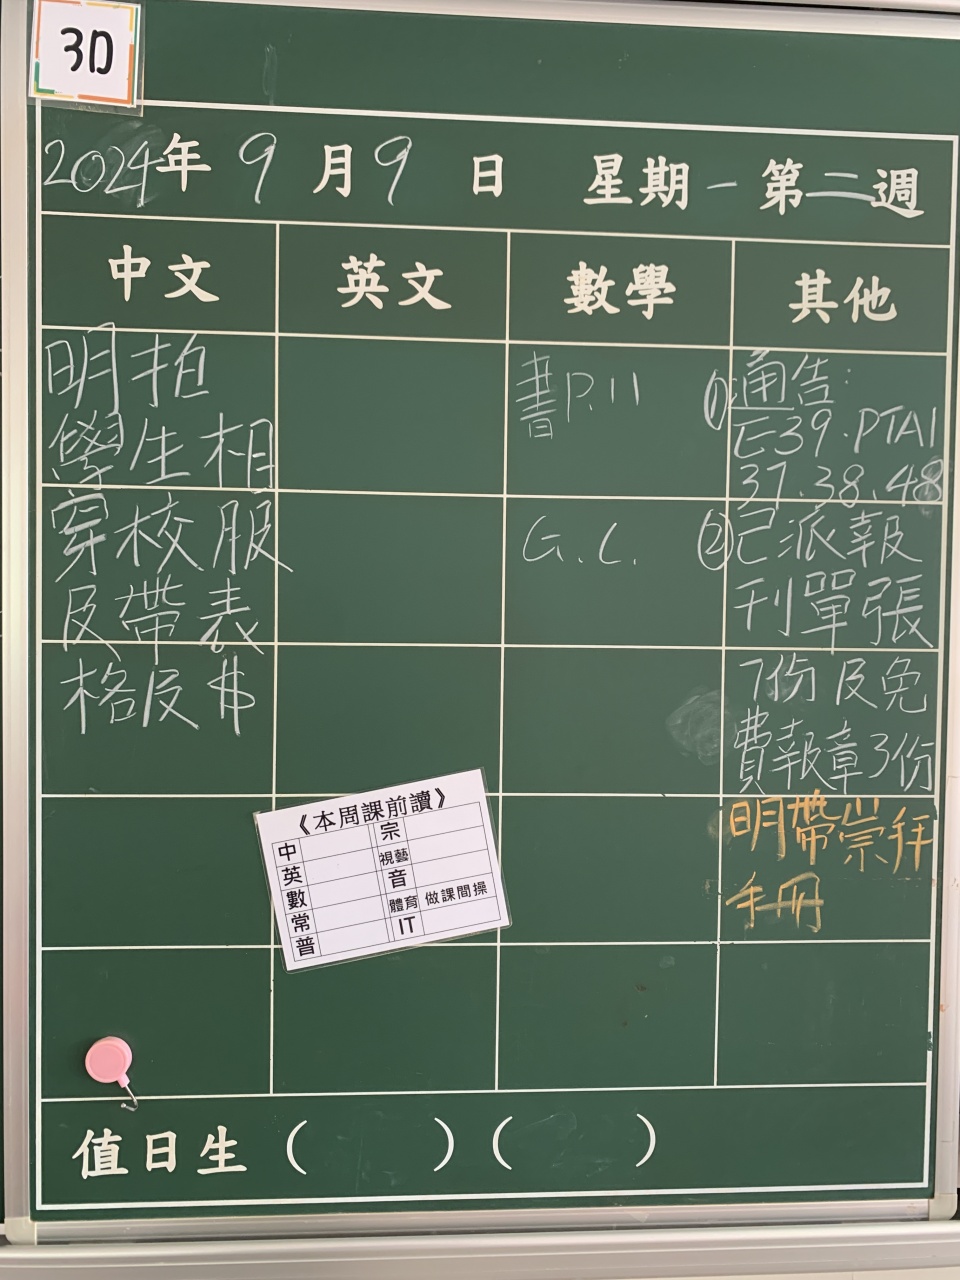 3D
2024年 9月9日 星期一 第二週
中文 英文 數學 其他
明拍
學生相
穿校服
及帶表
格及$
書P.11
G.C.
①通告:
E39.PTA1
37.38.48
②已派報
刊單張
7份及免
費報章3份
明帶崇拜
手冊
《本周課前讀》
中 宗
英 視藝
數 音
常 體育 做課間操
普 IT
值日生 ( ) ( )